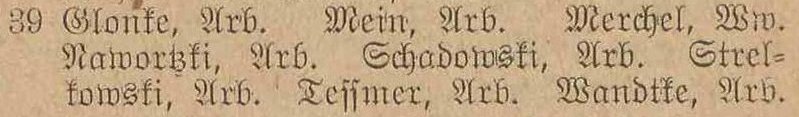 39 Glonke, Arb. Mein, Arb. Merchel, Ww.
Nawortzki, Arb. Schadowski, Arb. Strel-
kowski, Arb. Tessmer, Arb. Wandtke, Arb.